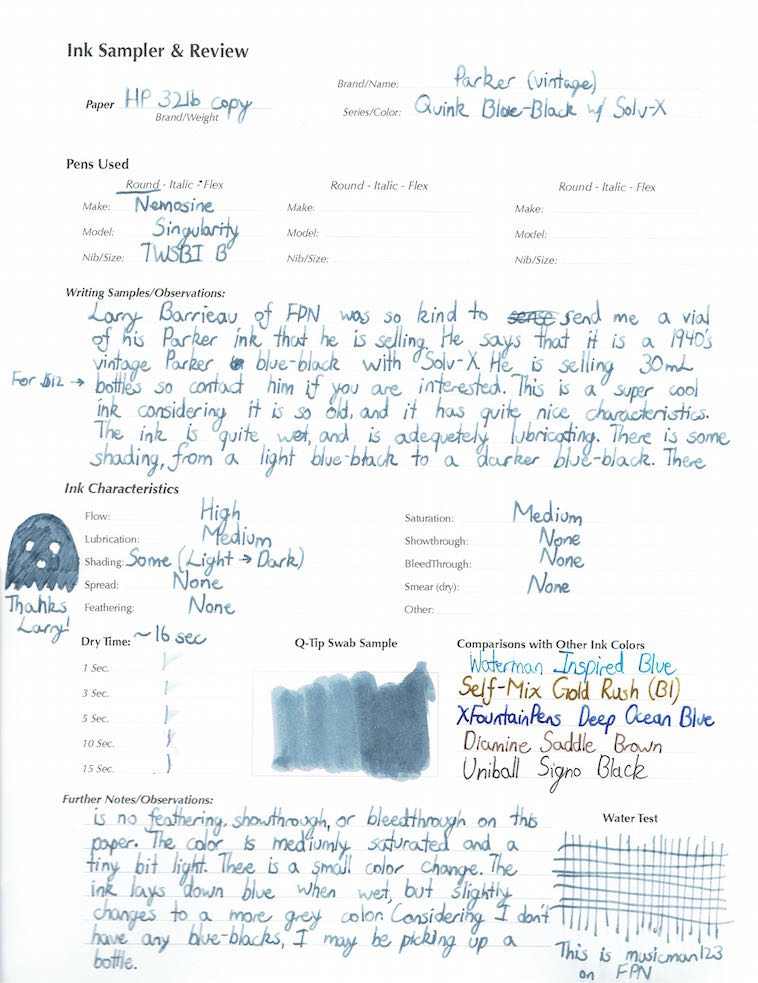 Ink Sampler & Review
Brand/Name: Parker (vintage)
Paper HP 32lb copy
Brand/Weight
Series/Color: Quink Blue-Black w/ Solv-X
Pens Used
Round - Italic - Flex
Round - Italic - Flex
Round - Italic - Flex
Make: Nemosine
Make:
Make:
Model: Singularity
Model:
Model:
Nib/Size: TWSBI B
Nib/Size:
Nib/Size:
Writing Samples/Observations:
Larry Barrieau of FPN was so kind to sense send me a vial
of his Parker ink that he is selling. He says that it is a 1940's
vintage Parker blue-black with Solv-X He is selling 30mL
For $12 → bottles so contact him if you are interested. This is a super cool
ink considering it is so old, and it has quite nice characteristics.
The ink is quite wet, and is adequetely lubricating. There is some
shading, from a light blue-black to a darker blue-black. There
Ink Characteristics
Flow: High
Saturation: Medium
Lubrication: Medium
Showthrough: None
Shading: Some (Light → Dark)
BleedThrough: None
Spread: None
Smear (dry): None
Feathering: None
Other:
Thanks
Larry!
Dry Time: ~16 sec
1 Sec.
3 Sec.
5 Sec.
10 Sec.
15 Sec.
Q-Tip Swab Sample
Comparisons with Other Ink Colors
Waterman Inspired Blue
Self-Mix Gold Rush (B1)
XFountainPens Deep Ocean Blue
Diamine Saddle Brown
Uniball Signo Black
Further Notes/Observations:
is no feathering, showthrough, or bleedthrough on this
paper. The color is mediumly saturated and a
tiny bit light. There is a small color change. The
ink lays down blue when wet, but slightly
changes to a more grey color. Considering I don't
have any blue-blacks, I may be picking up a
bottle.
Water Test
This is musicman123
on FPN